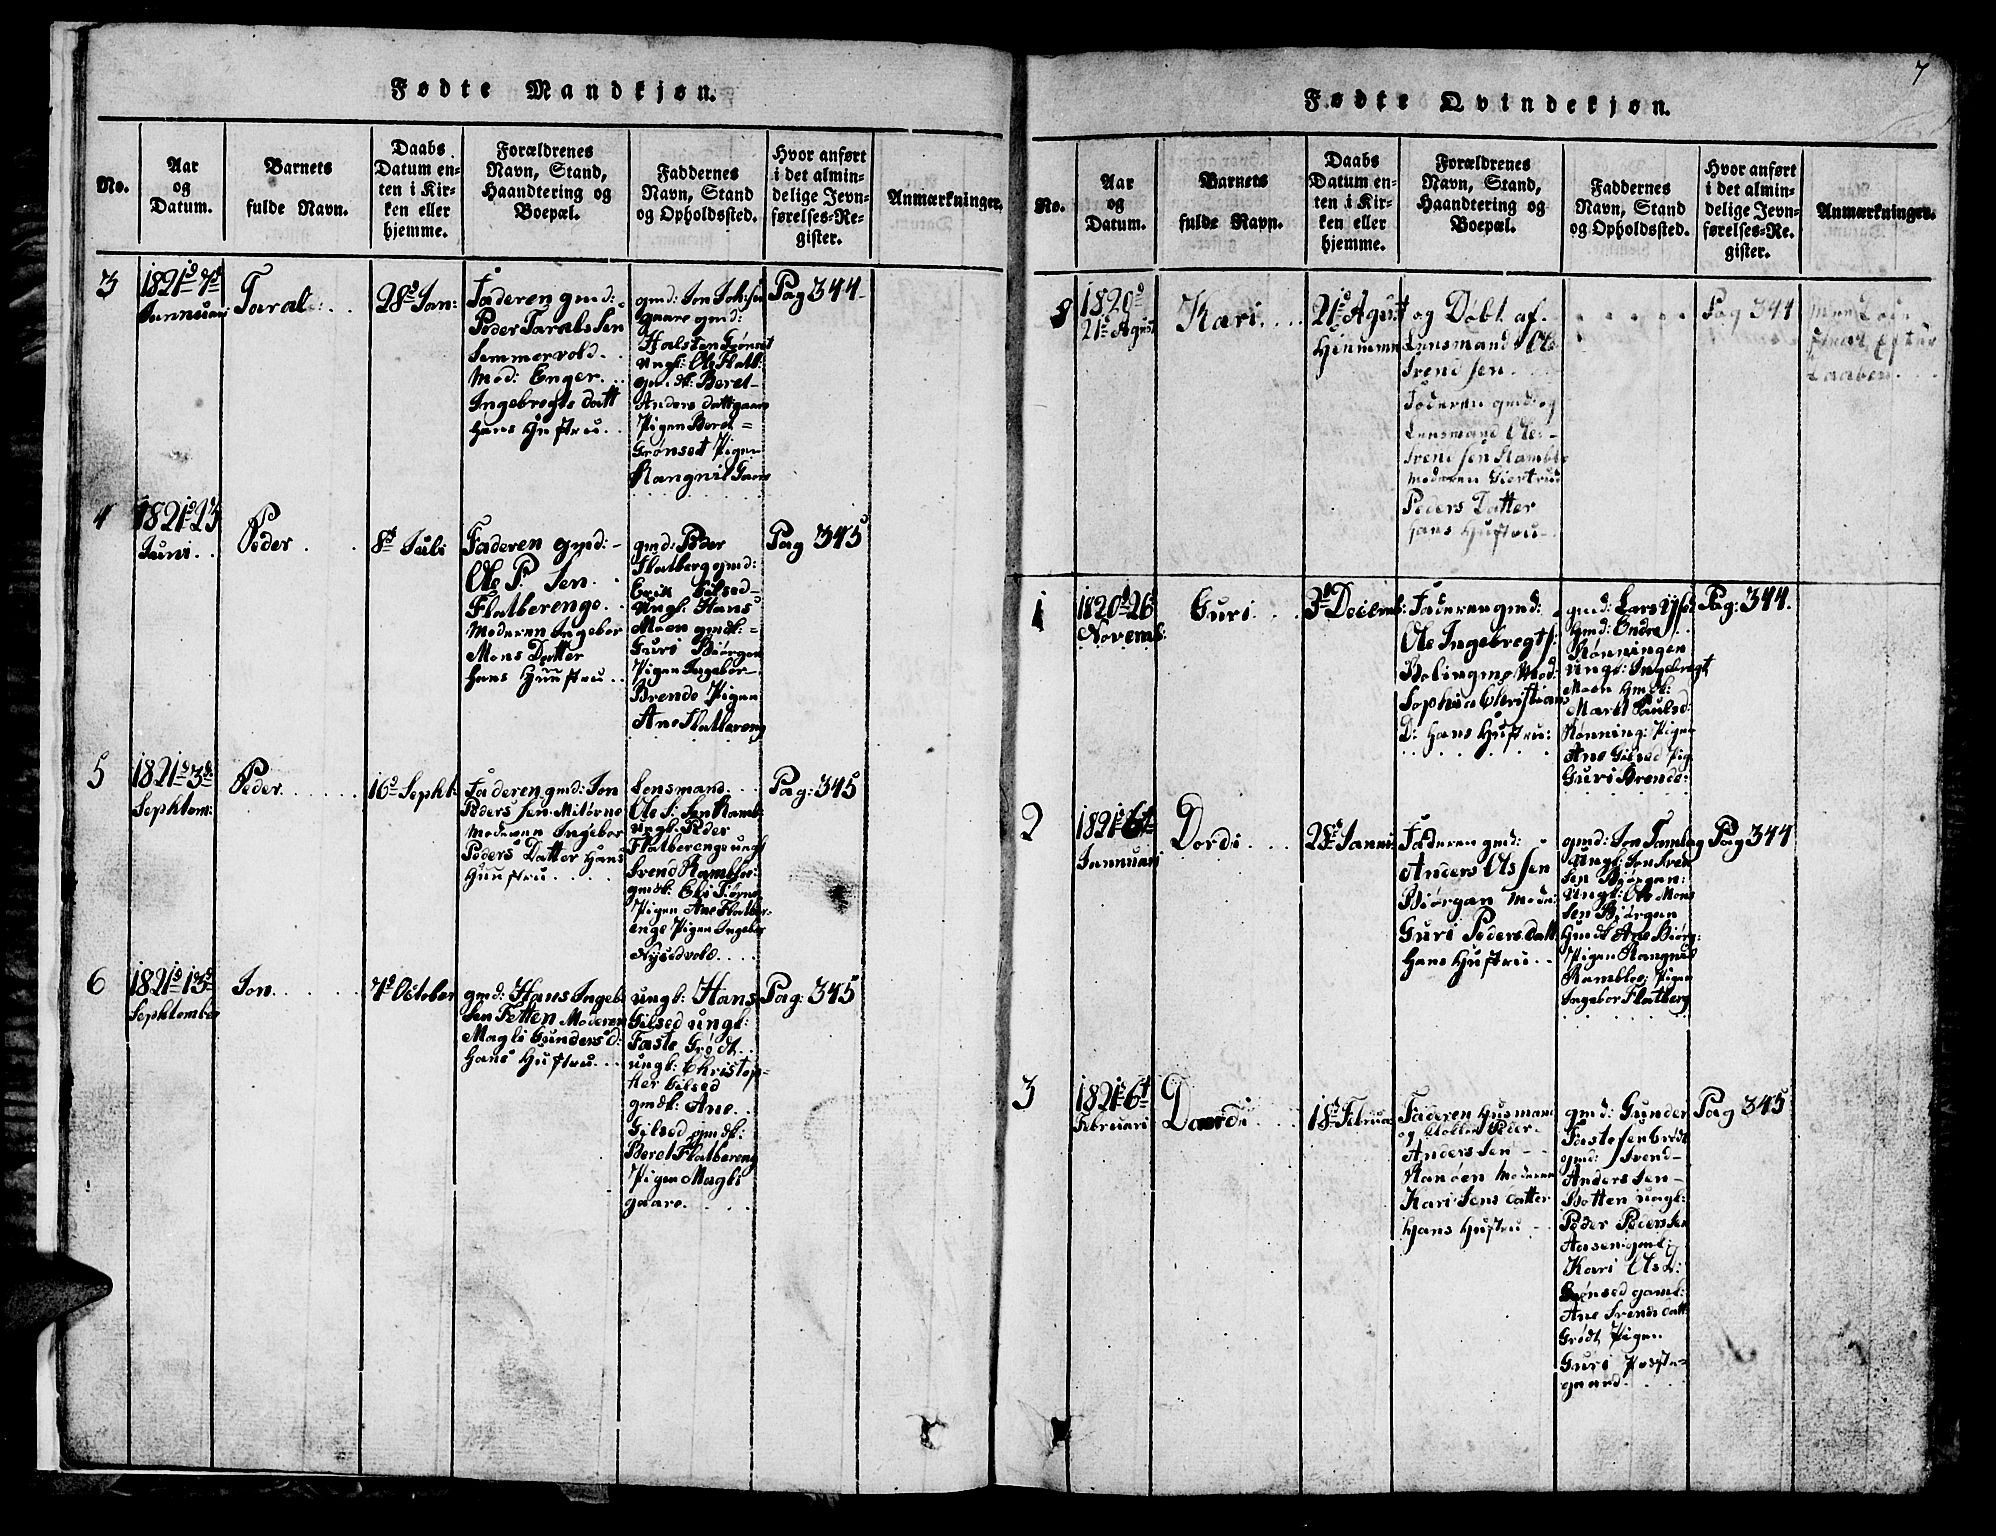 Fødte Mandkjøn.
No.
Aar
og
Datum.
Barnets
fulde Navn.
Daabs
Datum en-
ten i Kir-
ken eller
hjemme.
Forældrenes
Navn, Stand,
Haandtering og
Boepæl.
Faddernes
Navn, Stand
og Opholdssted.
Hvor anført
i det almin-
delige Jevn-
førelses-Re-
gister.
Anmærkninger.
3
1821 7de
Jannuari
Taral
28d Jan:
Faderen gmd:
Peder Taralssen
Semmervold
Mod: Enger
Ingebregts datt
Hans Hustru
gmd: Jon Joh:sen
gaare gmd:
Halsten Grønset
Ungk: Ole Flatb:
gmdk: Beret
Anders dattgaare
Pigen Beret
Grønset Pigen
Rangnil Gaare
Pag 344
4
1821 23
Juni
Peder
8d Juli
Faderen gmd:
Ole P. Sen
Flatberenge
Moderen Ingebor
Mons Datter
Hans Huustru
gmd: Peder
Flatberg gmd:
Erik Gilsed
Ungk: Hans
Moen gmdk:
Guri Biørgen
Pigen Ingebor
Brende Pigen
Ane Flatbereng
Pag 345
5
1821 3d
Septtem:
Peder
16d Septt:
Faderen gmd: Jon
Peders Sen Mitørne
Moderen Ingebor
Peders Datter Hans
Huustru
Lensmand
Ole S: Sen Ramb:
Ungk: Peder
Flatberenge ungk
Svend Ramblos:
gmdk: Eli Tiørne
Pigen Ane Flatber-
enge Pigen Ingebor
Nysedvold
Pag: 345
6
1821 13d
Septtember
Jon
7d October
gmd: Hans Ingeb:
Sen Fetten Moderen
Magli Gunders d:
Hans Hustru
ungk: Hans
Gilsed ungk:
Faste Grødt
ungk: Christop-
her Gilsed
gmdk: Ane
Gilsed gmdk:
Beret Flatbereng
Pigen Magli
gaare
Pag: 345
7
Fødte Qvindekjøn.
No.
Aar
og
Datum.
Barnets
fulde Navn.
Daabs
Datum en-
ten i Kir-
ken eller
hjemme.
Forældrenes
Navn, Stand,
Haandtering og
Boepæl.
Faddernes
Navn, Stand
og Opholdssted.
Hvor anført
i det almin-
delige Jevn-
førelses-Re-
gister.
Anmærkninger.
1820
21d Agust
Kari
21d Agust
Hiemme
og Døbt af
Lensmand Ole
Svend Sen
Faderen gmd: og
Lensmand Ole
Svend Sen Ramble
Moderen Giertrud
Peders Datter
Hans Hustru
Pag 344
Efter
Daaben
1
1820 26
Novemb:
Guri
3d Decemb:
Faderen gmd:
Ole Ingebregts:
Bolingmo Mod:
Sophia Christians
D: Hans Hustru:
gmd: Lars
gmd: Endre
Rønningen
ungk: Ingebregt
Moen Gmdk:
Marit Paulsd:
Rønning: Pigen
Ane Gilsed Pig:
Guri Brende:
Pag: 344.
2
1821 6te
Jannuari
Dordi
28d Janni
Faderen gmd:
Anders Ols Sen
Biørgan Mode:
Guri Peders datt
Hans Hustru
gmd: Jon Tamlag
Ungk: Jon Sven
Sen Biørgan:
Ungk: Ole Mons
Sen Biørgan
Gmdk Ane Biørg:
Pigen Rangnil
Ramblos: Pigen
Ingebor Flatberg
Pag 344
3
1821 6t
Februari
Dordi
18d Februa
Faderen Husmand
og Peder
Anders Sen
Nanøen Moderen
Kari Jens Datter
Hans Hustru
gmd: Gunder
Fastesen Grødt
gmd: Svend
Anders Sen
Botten ungk:
Peder Peders Sen
Aasen gmk:
Kari Ols D:
Grønsed gamk:
Ane Svends datt:
Grødt Pigen
Guri Præste-
gaard
Pag 345